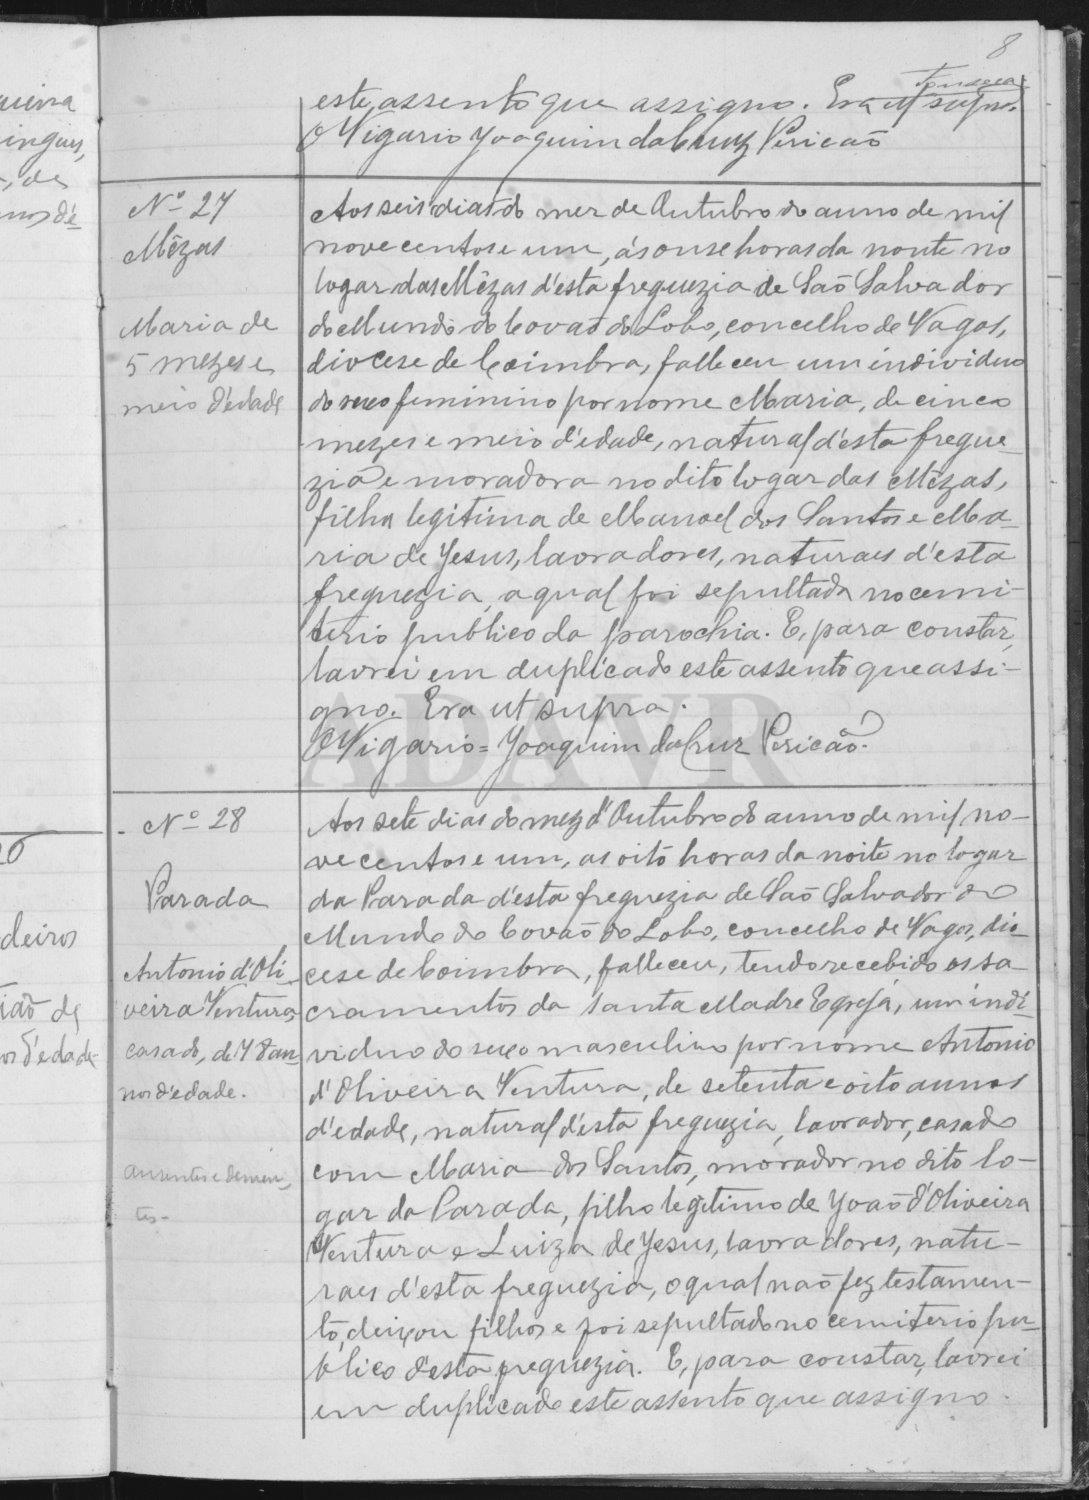 8
Fonseca
este assento que assigno. Era ut supra.
O Vigario Joaquim da Cruz Pericão
Nº 27
Mêzas
Maria de
5 mezes e
meio d'edade
Aos seis dias do mez de Outubro do anno de mil
nove centos e um, ás onse horas da noute no
logar das Mêzas d'esta freguezia de São Salvador
do Mundo do Covão do Lobo, concelho de Vagos,
diocese de Coimbra, falleceu um individuo
do sexo feminino por nome Maria, de cinco
mezes e meio d'edade, natural d'esta fregue-
zia e moradora no dito logar das Mêzas,
filha legitima de Manoel dos Santos e Ma-
ria de Jesus, lavradores, naturaes d'esta
freguezia, a qual foi sepultada no cemi-
terio publico da parochia. E, para constar,
lavrei em duplicado este assento que assi-
gno. Era ut supra.
O Vigario = Joaquim da Cruz Pericão.
ADAVR
Nº 28
Parada
Antonio d'Oli-
veira Ventura,
casado, de 78 an-
nos d'edade.
ausentes e demen-
tes-
Aos sete dias do mez d'Outubro do anno de mil no-
ve centos e um, as oito horas da noite no logar
da Parada d'esta freguezia de São Salvador do
Mundo do Covão do Lobo, concelho de Vagos, dio-
cese de Coimbra, falleceu, tendo recebido os sa-
cramentos da Santa Madre Egreja, um indi-
viduo do sexo masculino por nome Antonio
d'Oliveira Ventura, de setenta e oito annos
d'edade, natural d'esta freguezia, lavrador, casado
com Maria dos Santos, morador no dito lo-
gar da Parada, filho legitimo de João d'Oliveira
Ventura e Luiza de Jesus, lavradores, natu-
raes d'esta freguezia, o qual não fez testamen-
to, deixou filhos e foi sepultado no cemiterio pu-
blico d'esta freguezia. E, para constar, lavrei
em duplicado este assento que assigno.
deiros
d'edade